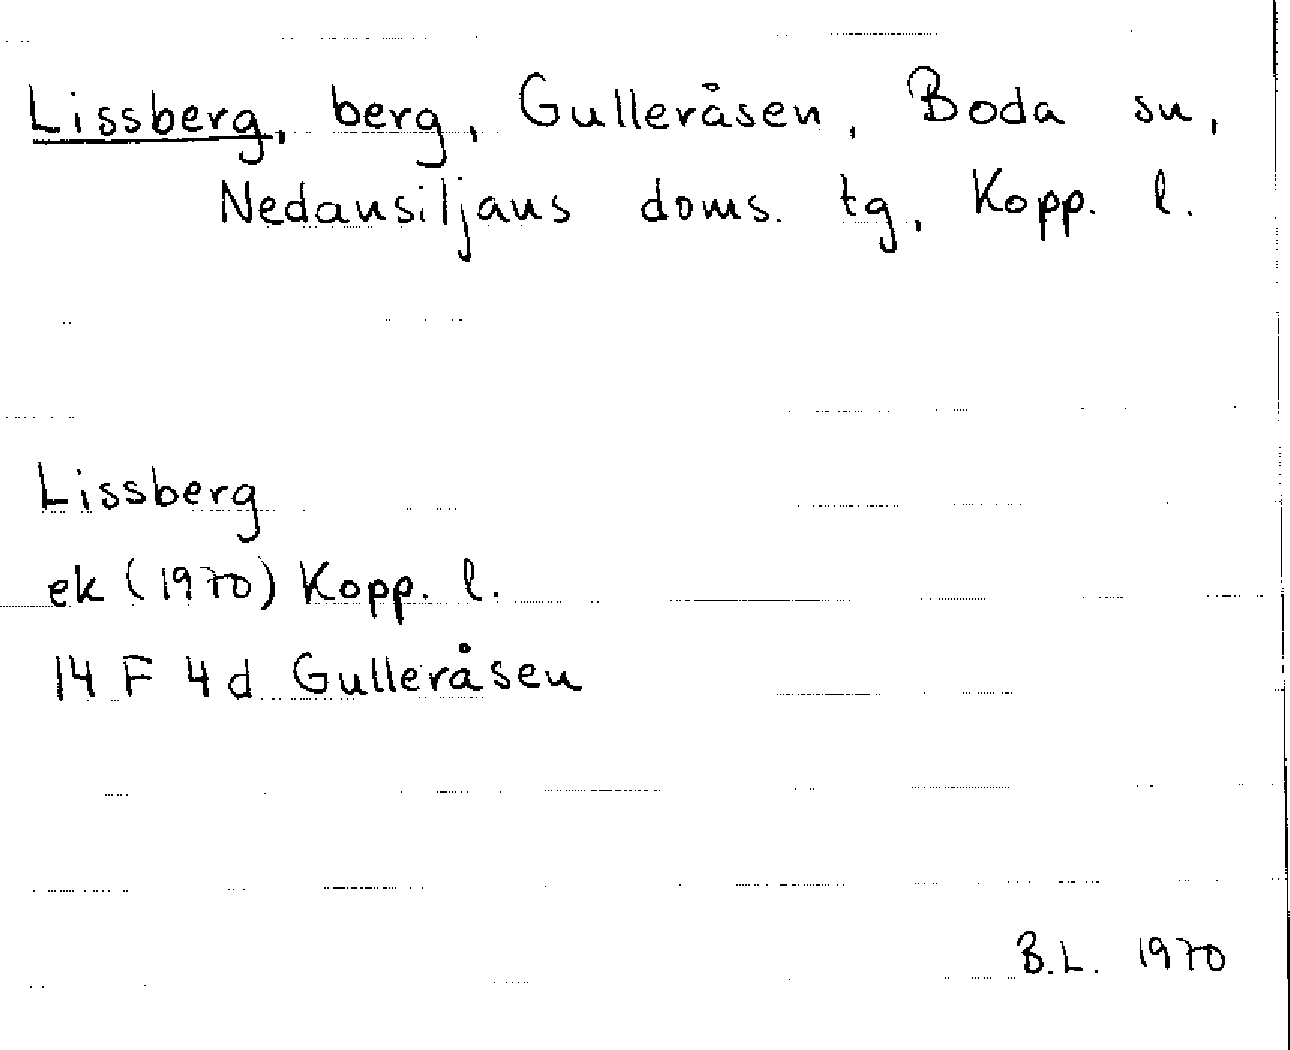 Lissberg, berg, Gulleråsen, Boda sn,
Nedansiljans doms. tg, Kopp. l.
Lissberg
ek (1970) Kopp. l.
14 F 4 d Gulleråsen
B.L. 1970